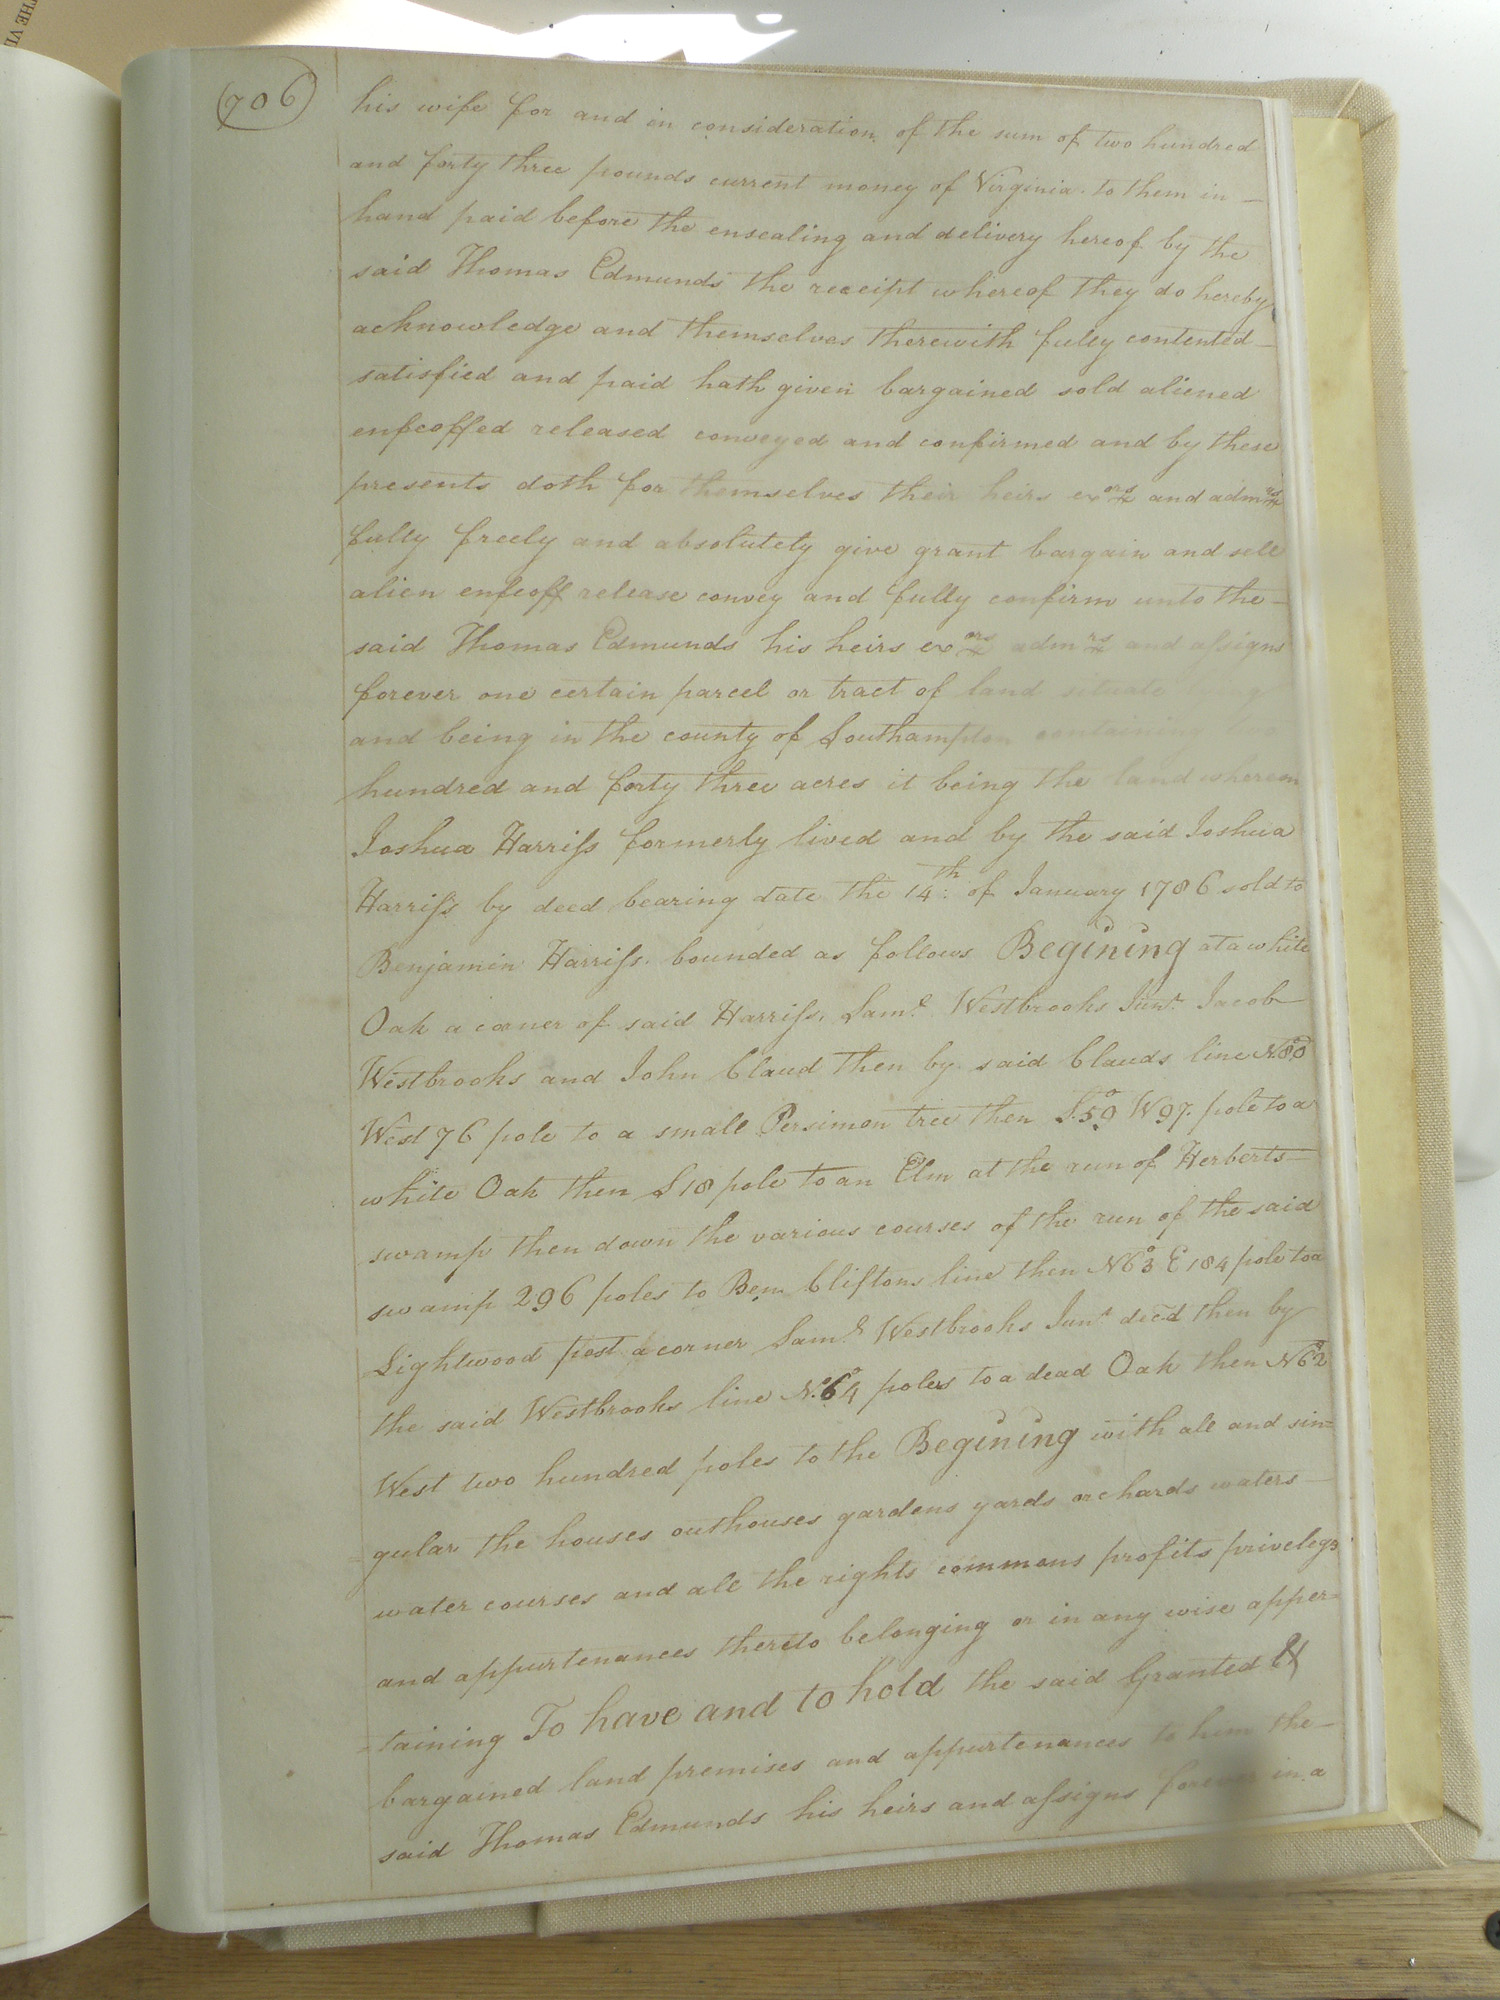 THE VI
706
his wife for and in consideration of the sum of two hundred
and forty three pounds current money of Virginia to them in —
hand paid before the ensealing and delivery hereof by the
said Thomas Edmunds the receipt whereof they do hereby
acknowledge and themselves therewith fully contented —
satisfied and paid hath given bargained sold aliened
enfeoffed released conveyed and confirmed and by these
presents doth for themselves their heirs exors and admrs
fully freely and absolutely give grant bargain and sell
alien enfeoff release convey and fully confirm unto the —
said Thomas Edmunds his heirs exors admrs and assigns
forever one certain parcel or tract of land situate
and being in the county of Southampton containing
hundred and forty three acres it being the land whereon
Joshua Harriss formerly lived and by the said Joshua
Harriss by deed bearing date the 14th: of January 1786 sold to
Benjamin Harriss. bounded as follows Begining at a white
Oak a corner of said Harriss, Saml. Westbrooks Junr. Jacob
Westbrooks and John Claud then by said Clauds line N80°
West 76 pole to a small Persimon tree then S.50° W97. pole to a
white Oak then S18 pole to an Elm at the run of Herberts —
swamp then down the various courses of the run of the said
swamp 296 poles to Ben Cliftons line then N63° E 184 pole to a
Lightwood post a corner Saml. Westbrooks Junr. deced then by
the said Westbrooks line N.64° poles to a dead Oak then N62°
West two hundred poles to the Begining with all and sin=
gular the houses outhouses gardens yards orchards waters —
water courses and all the rights commons profits privelegs
and appurtenances thereto belonging or in any wise apper=
=taining To have and to hold the said Granted &
bargained land premises and appurtenances to him the —
said Thomas Edmunds his heirs and assigns forever in a